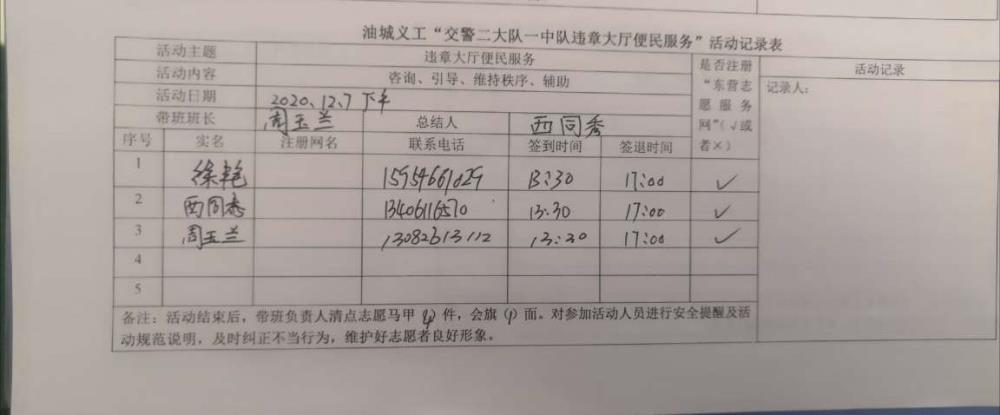 油城义工“交警二大队一中队违章大厅便民服务”活动记录表
活动主题 违章大厅便民服务 是否注册“东营志愿服务网”（√或者×） 活动记录
活动内容 咨询、引导、维持秩序、辅助 记录人：
活动日期 2020、12、7 下午
带班班长 周玉兰 总结人 西同秀
序号 实名 注册网名 联系电话 签到时间 签退时间
1 徐艳 15954661029 13:30 17:00 ✓
2 西同秀 13406116570 13:30 17:00 ✓
3 周玉兰 13082613112 13:30 17:00 ✓
4
5
备注：活动结束后，带班负责人清点志愿马甲（4）件，会旗（1）面。对参加活动人员进行安全提醒及活
动规范说明，及时纠正不当行为，维护好志愿者良好形象。